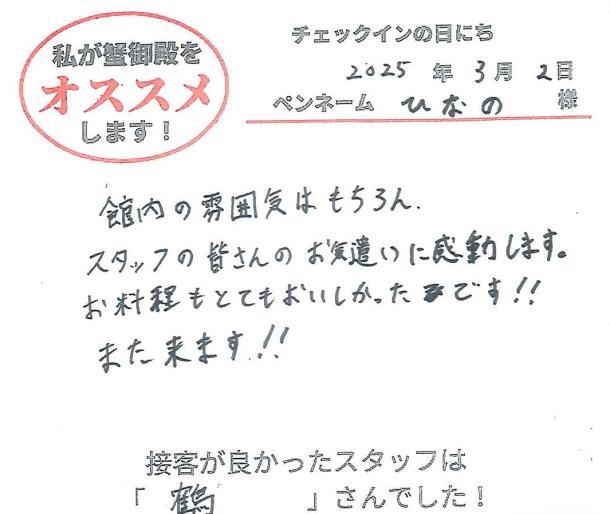 私が蟹御殿を
オススメ
します！
チェックインの日にち
2025 年 3月 2日
ペンネーム ひなの 様
館内の雰囲気はもちろん、
スタッフの皆さんのお気遣いに感動します。
お料理もとてもおいしかったです!!
また来ます!!
接客が良かったスタッフは
「 鶴 」さんでした！